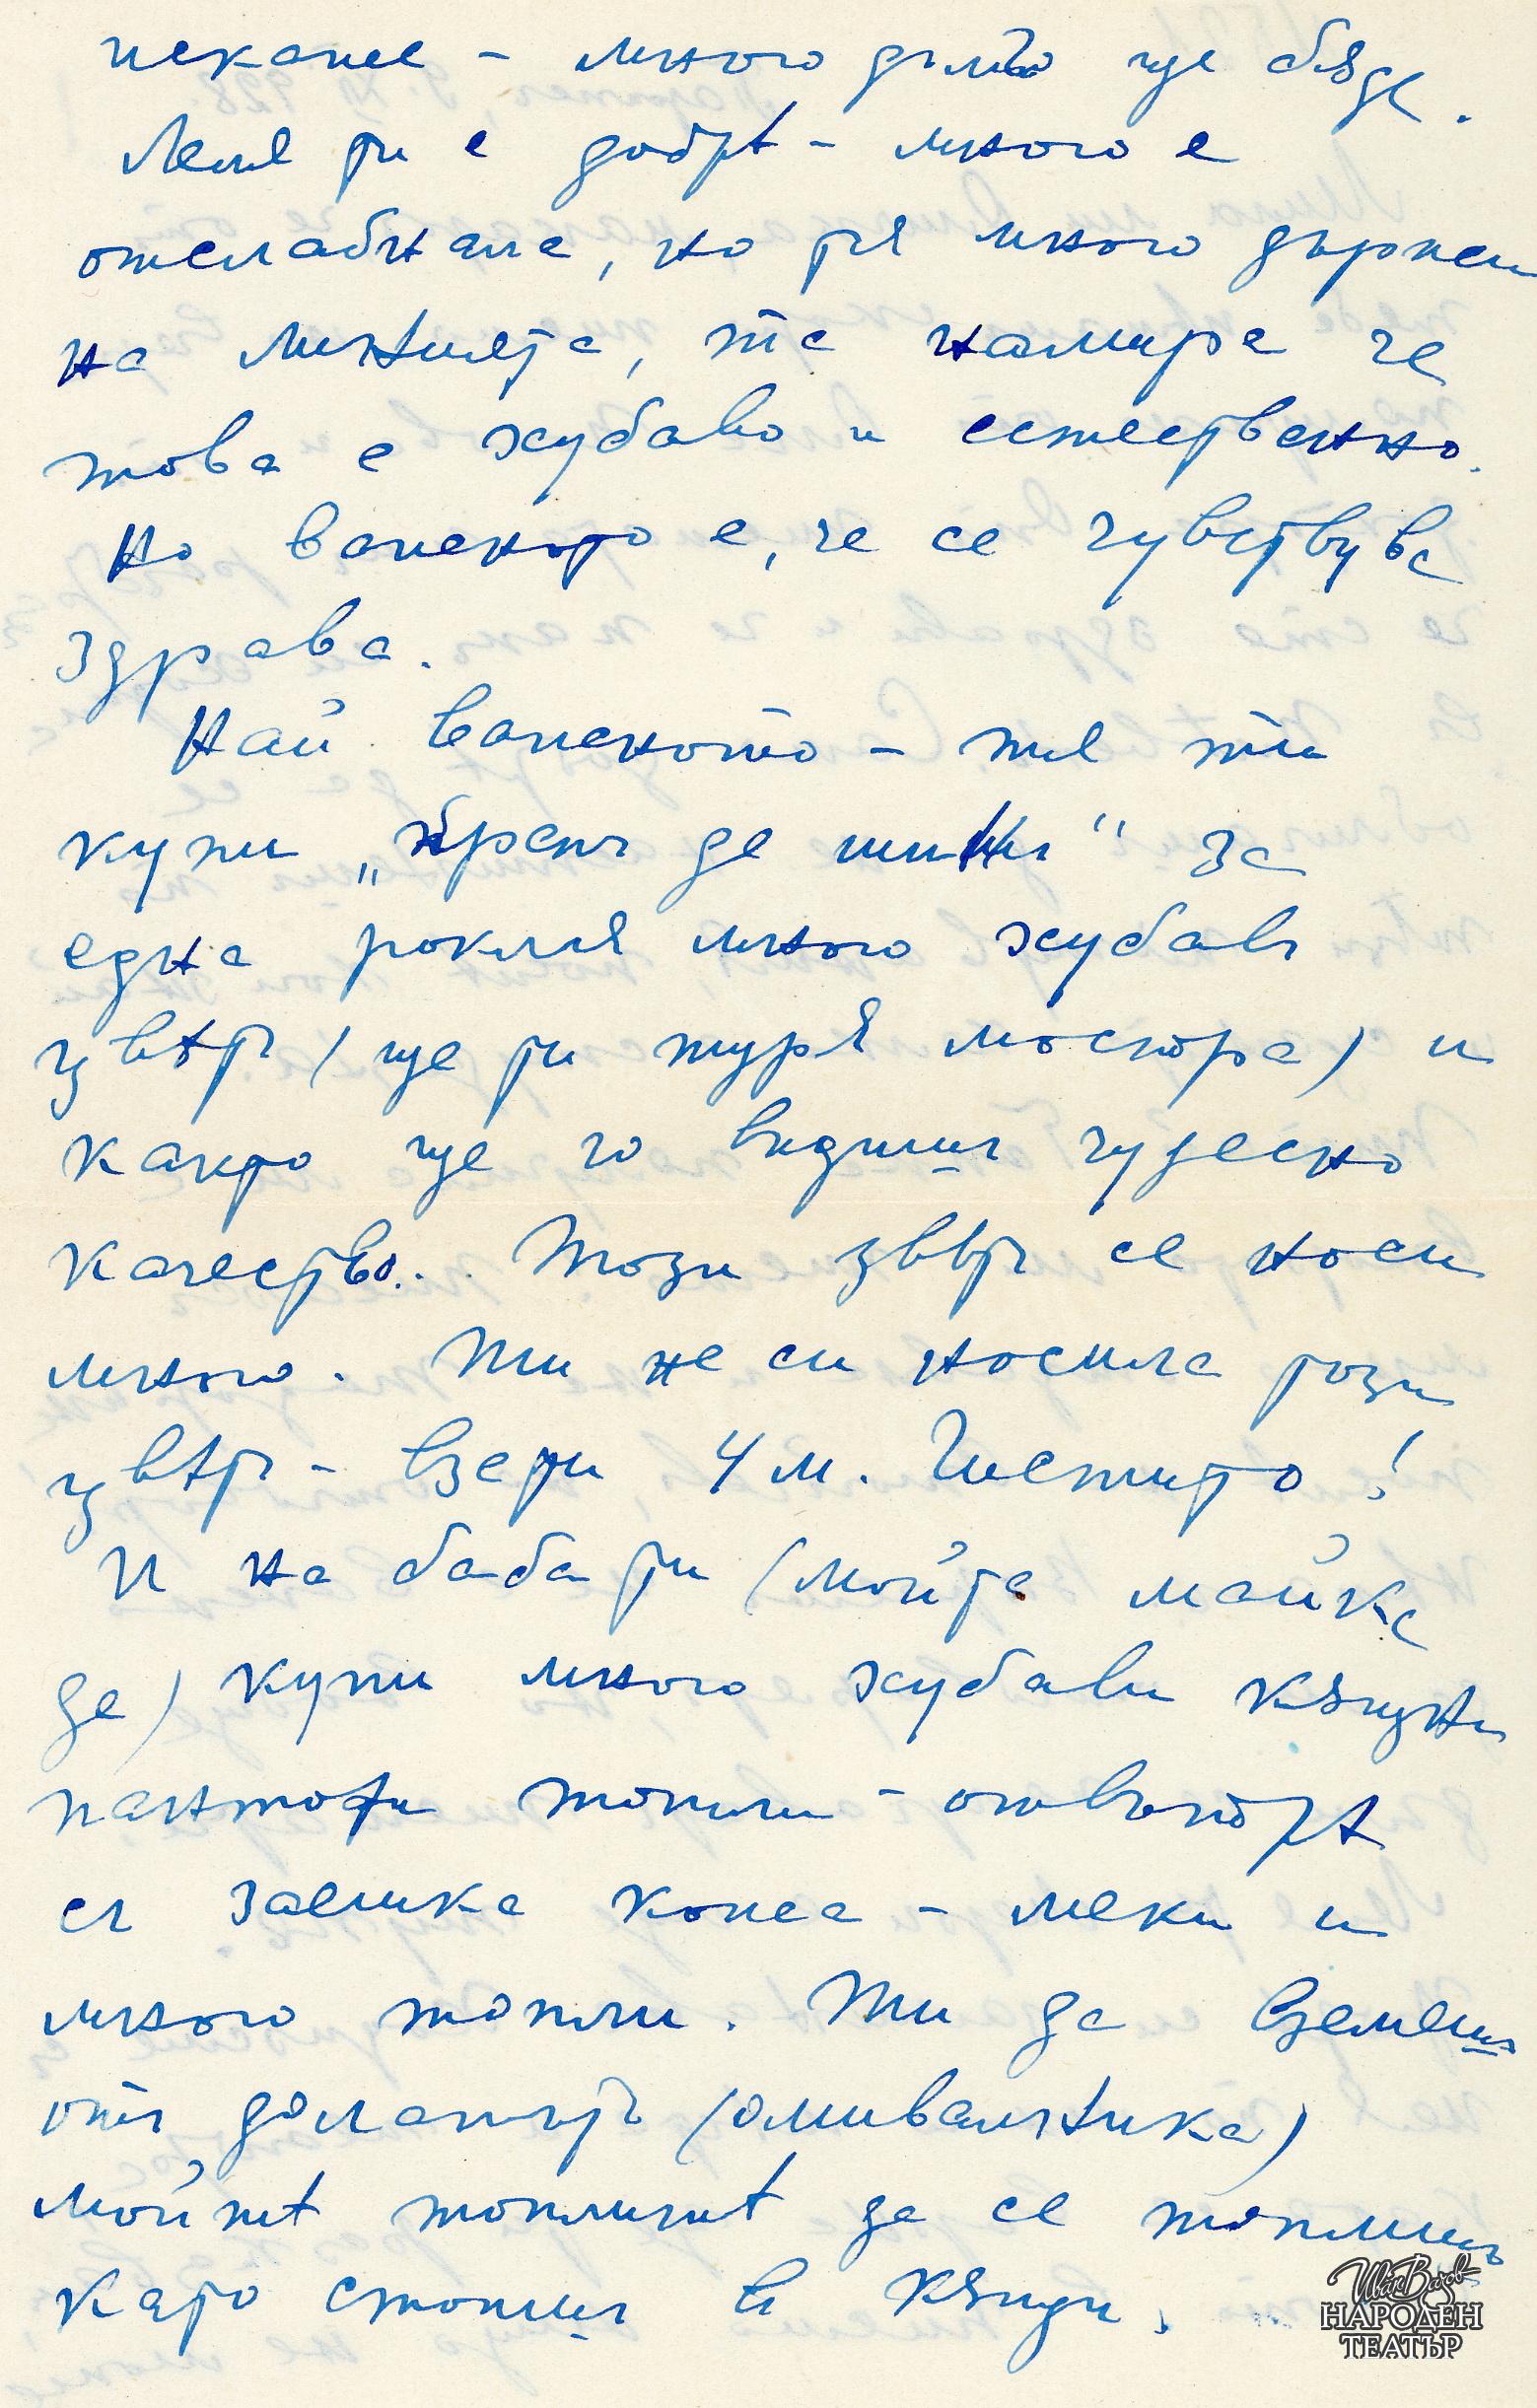 искаше - много дълго ще бѫде.
Леля ти е добрѣ - много е
отслабнала, но тя много държи
на линията, та намира че
това е хубаво и естественно.
Но важното е, че се чувствува
здрава.
Най важното - тя ти
купи „крепъ де шинъ" за
една рокля много хубавъ
цвѣтъ (ще ти туря мостра) и
както ще го видишъ чудесно
качество. Този цвѣтъ се носи
много. Ти не си носила този
цвѣтъ - взети 4 м. Честито!
И на баба ти (мойта майка
де) купи много хубави кѫщни
пантофи топли - отвътрѣ
съ заешка кожа - меки и
много топли. Ти да вземешъ
отъ долапътъ (омивалнѣка)
мойтѣ топлитѣ да се топлишъ
като стоишъ в кѫщи.
Иван Вазов
НАРОДЕН
ТЕАТЪР